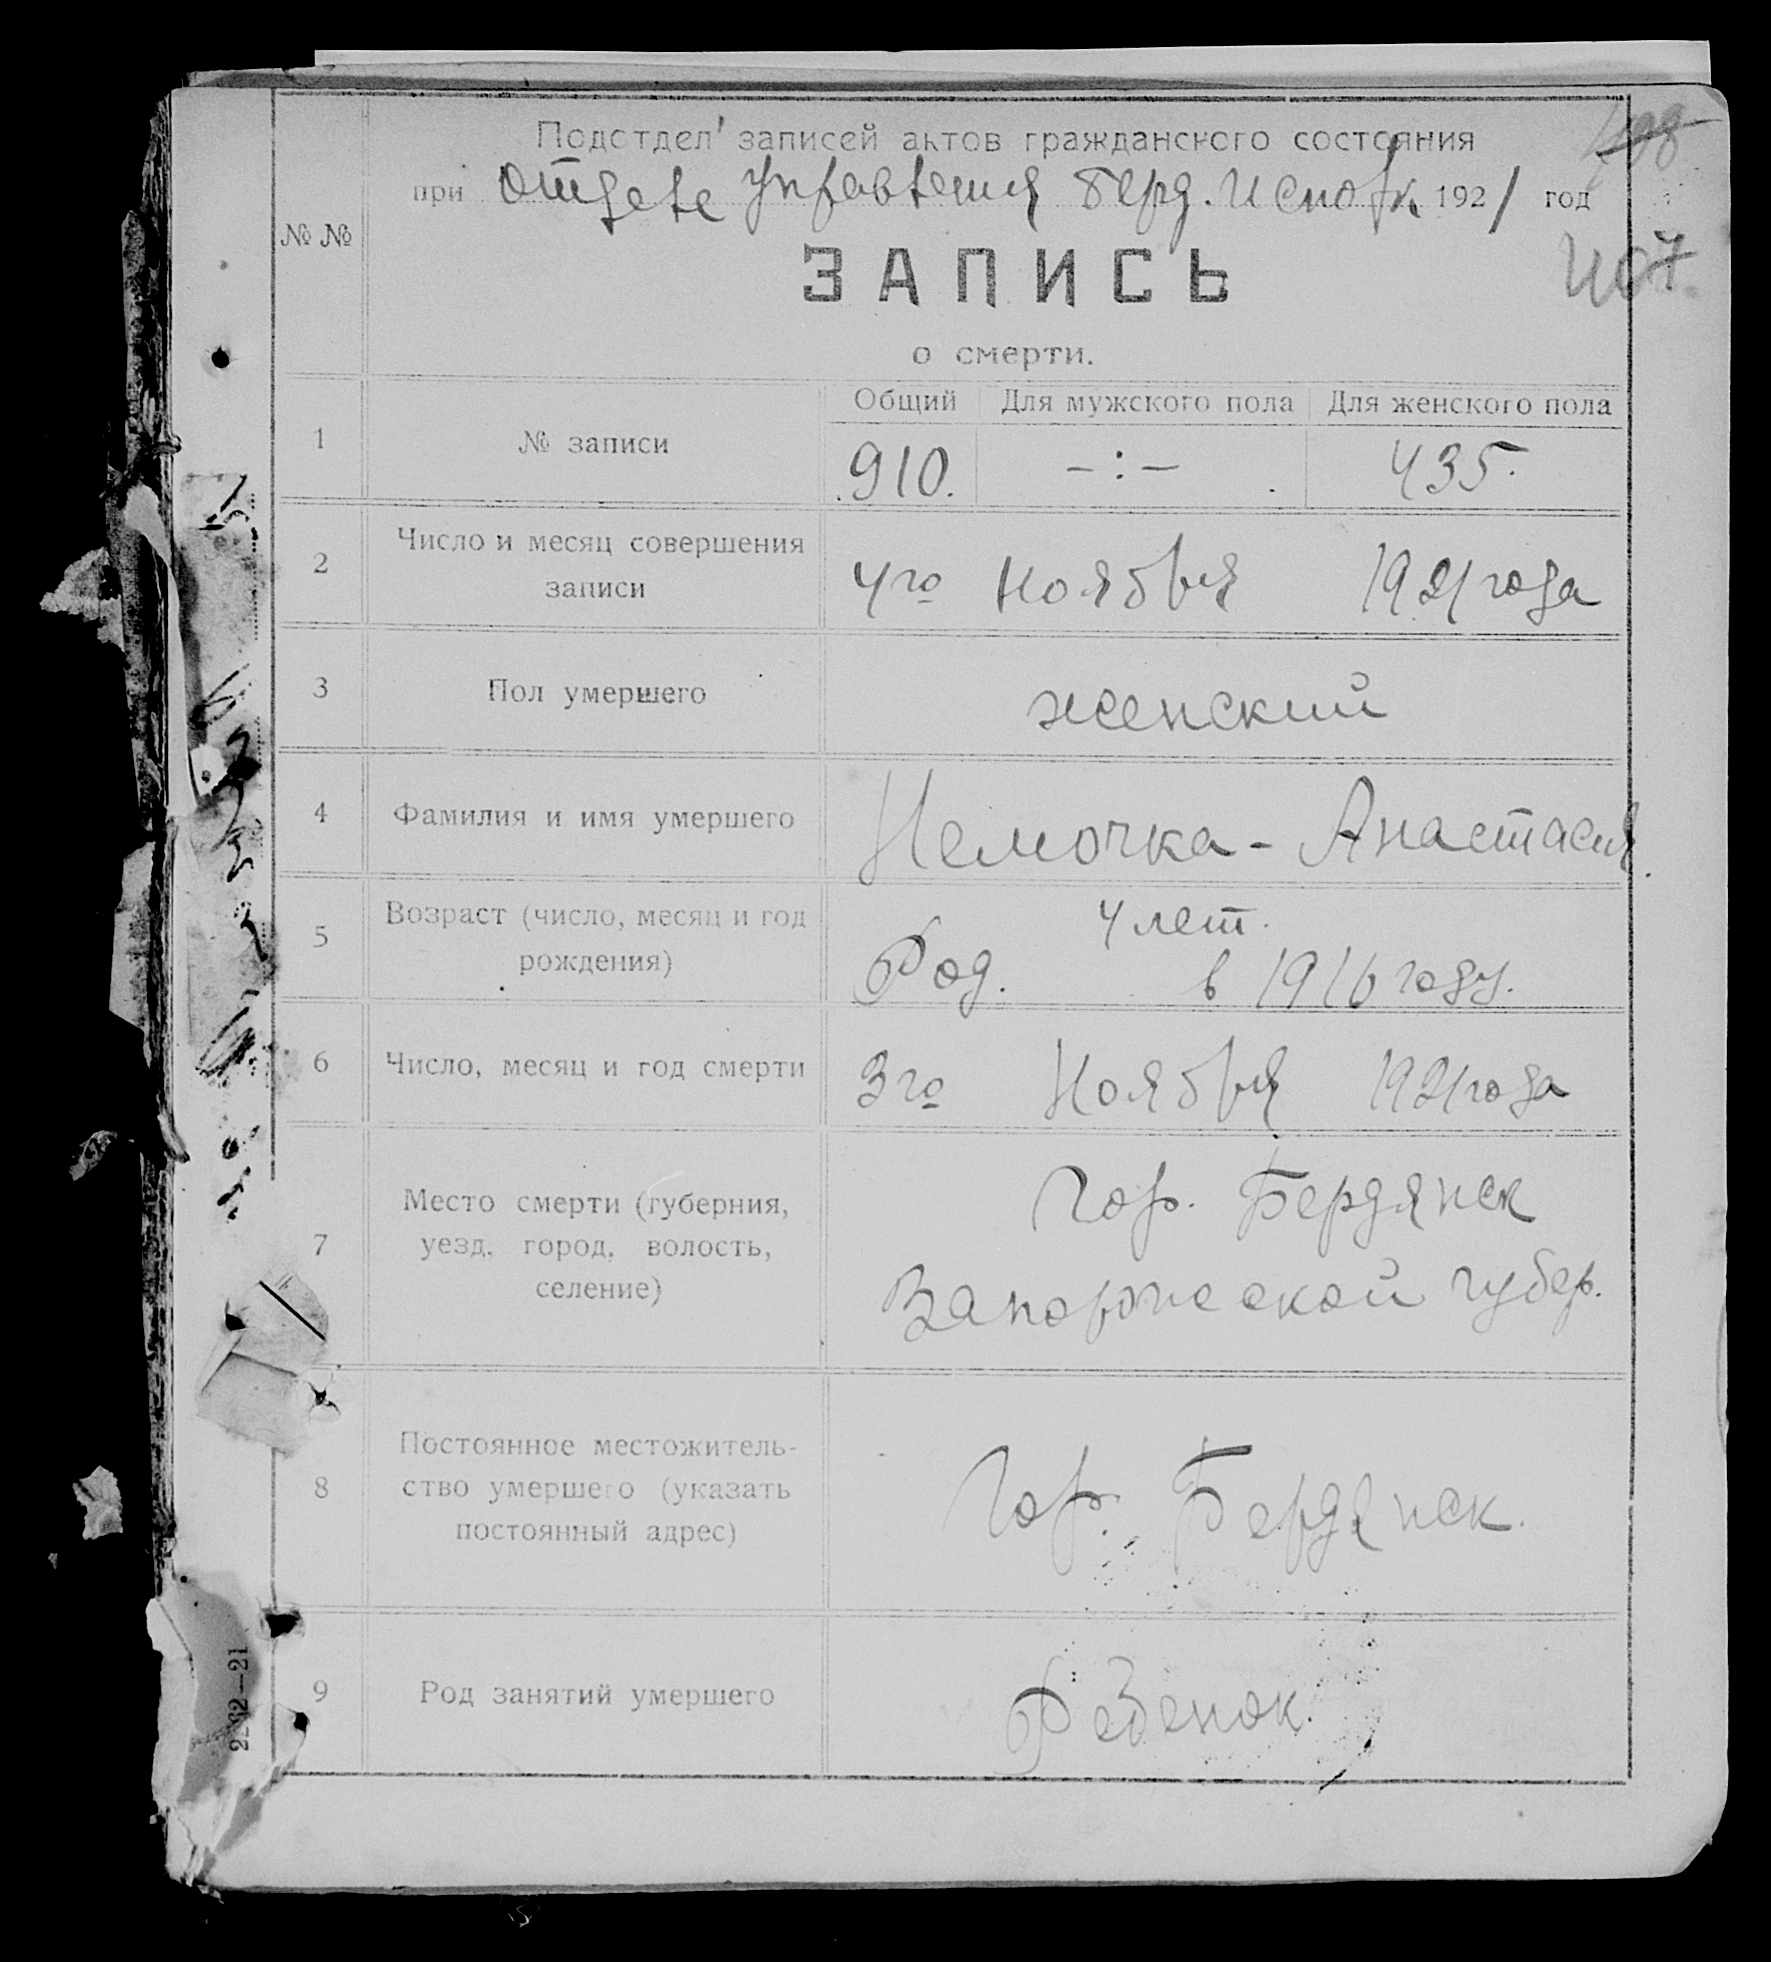 Подотдел записей актов гражданского состояния
при Отделе Управления Берд. Исполк. 1921 год
№ №
407
ЗАПИСЬ
о смерти.
Общий Для мужского пола Для женского пола
1 № записи 910. -:- 435.
2 Число и месяц совершения
записи
4го Ноября 1921 года
3 Пол умершего женский
4 Фамилия и имя умершего Немочка - Анастасия.
5 Возраст (число, месяц и год
рождения)
4 лет.
Род. в 1916 году.
6 Число, месяц и год смерти 3го Ноября 1921 года
7 Место смерти (губерния,
уезд, город, волость,
селение)
Гор. Бердянск
Запорожской губер.
8 Постоянное местожитель-
ство умершего (указать
постоянный адрес)
Гор. Бердянск.
9 Род занятий умершего Ребенок.
2262—21